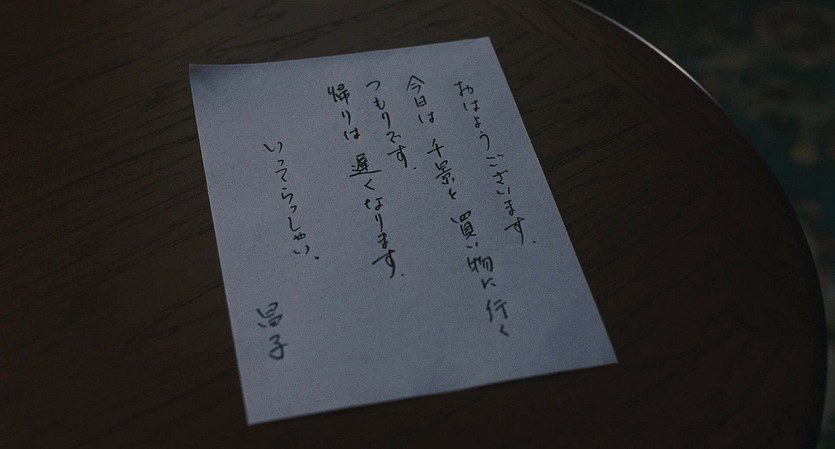 おはようございます。
今日は 千景と 買い物に 行く
つもりです。
帰りは 遅くなります。
いってらっしゃい。
昌子